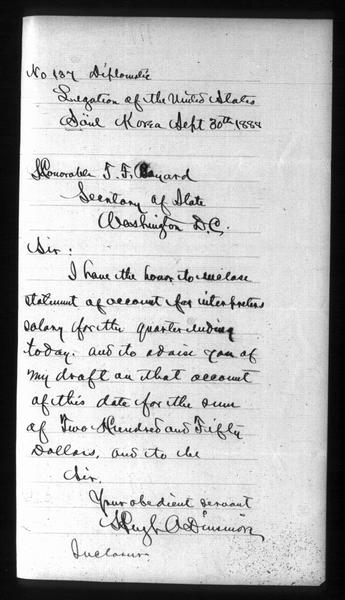 No 137 Diplomatic
Legation of the United States
Söul Korea Sept 30th 1888
Honorable T. F. Bayard
Secretary of State
Washington D.C.
Sir:
I have the honor to inclose
statement of account for interpreters
salary for the quarter ending
today. and to advise you of
my draft on that account
of this date for the sum
of Two Hundred and Fifty
Dollars, and to be
Sir.
Your obedient servant
Hugh A Dinsmore
Inclosure